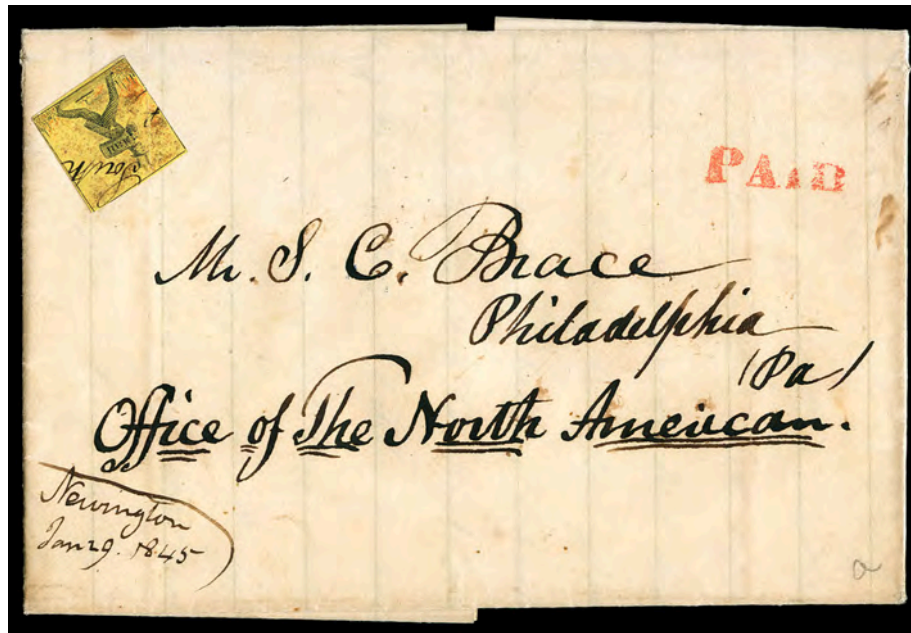 South
PAID
Mr. S. C. Brace
Philadelphia
(Pa)
Office of The North American.
Newington
Jan 29. 1845
a